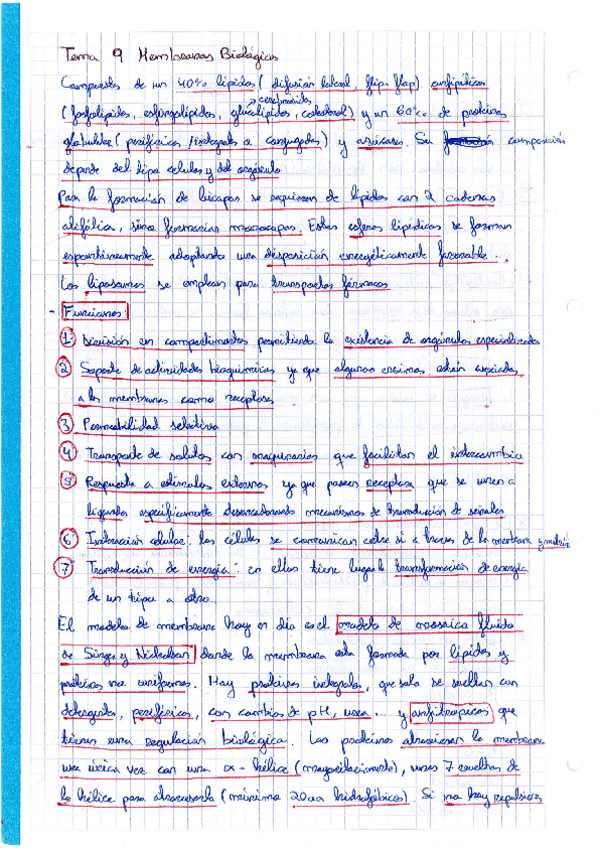 Tema 9 Membranas Biológicas
Compuestas de un 40% lípidos (difusión lateral, flip-flap) anfipáticos
cerebrosidos
(fosfolípidos, esfingolípidos, glucolípidos, colesterol) y un 60% de proteínas
globulares (periféricas / integrales o conjugadas) y azúcares. Su composición
depende del tipo celular y del orgánulo
Para la formación de bicapas se requieren de lípidos con 2 cadenas
alifática, sino formarías monocapas. Estas esferas lipídicas se forman
espontáneamente adoptando una disposición energéticamente favorable.
Los liposomas se emplean para transportar fármacos
- Funciones:
1. División en compartimentos permitiendo la existencia de orgánulos especializados
2 Soporte de actividades bioquímicas ya que algunas enzimas están asociadas
a las membranas como receptores
3 Permeabilidad selectiva
4 Transporte de solutos con maquinarias que facilitan el intercambio
5 Respuesta a estímulos externos ya que poseen receptores que se unen a
ligandos específicamente desencadenando mecanismos de transducción de señales
6 Interacción celular: las células se comunican entre si a traves de la membrana y matriz
7 Transducción de energía: en ellas tiene lugar la transformación de energía
de un tipo a otro.
El modelo de membrana hoy en día es el modelo de mosaico fluido
de Singer y Nicholson donde la membrana esta formada por lípidos y
proteínas no uniformes. Hay proteínas integrales, que solo se sueltan con
detergentes, periféricas, con cambios de pH, urea... y anfitropicas que
tienen una regulación biológica. Las proteínas atraviesan la membrana
una única vez con una α-hélice (mayoritariamente), unas 7 vueltas de
la hélice para atravesarla (mínimo 20aa hidrofóbicos). Si no hay repulsiones